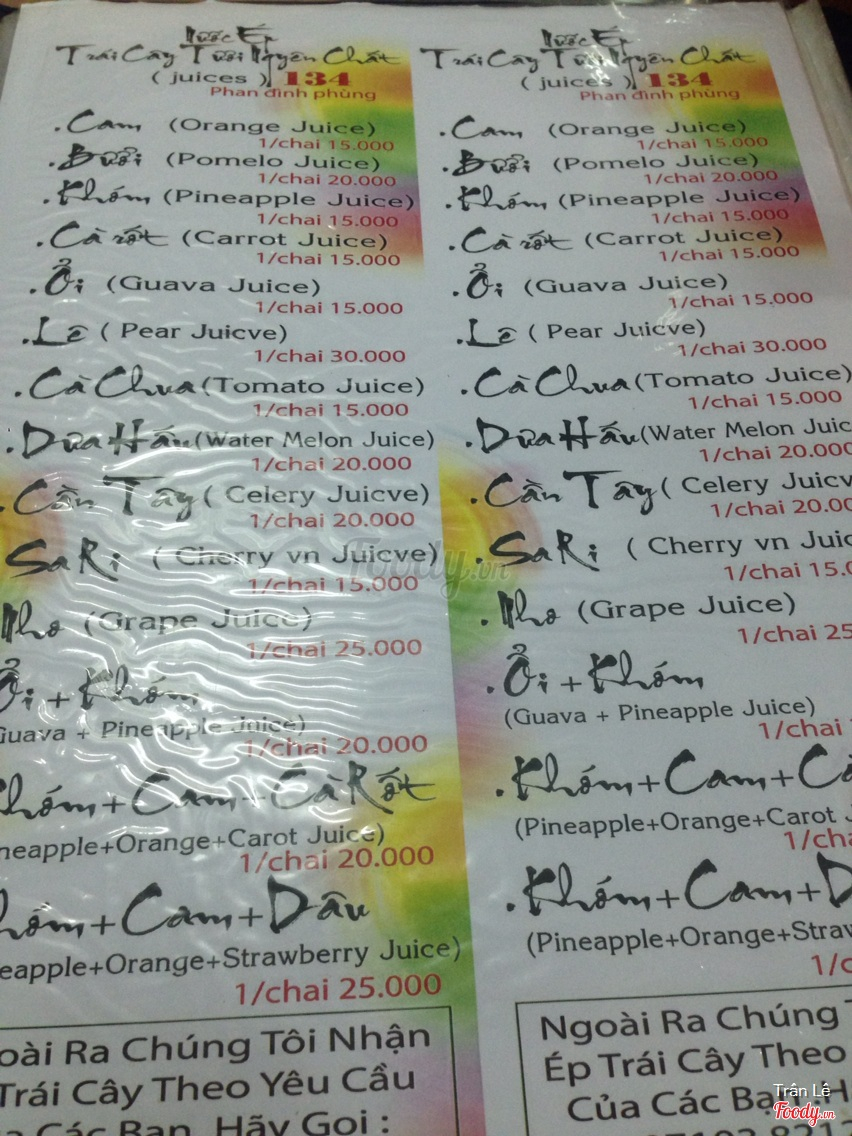 Nước Ép
Trái Cây Tươi Nguyên Chất
( juices ) 134
Phan đình phùng
.Cam (Orange Juice)
1/chai 15.000
.Bưởi (Pomelo Juice)
1/chai 20.000
.Khóm (Pineapple Juice)
1/chai 15.000
.Cà rốt (Carrot Juice)
1/chai 15.000
.Ổi (Guava Juice)
1/chai 15.000
.Lê ( Pear Juicve)
1/chai 30.000
.Cà Chua (Tomato Juice)
1/chai 15.000
.Dưa Hấu (Water Melon Juice)
1/chai 20.000
.Cần Tây ( Celery Juicve)
1/chai 20.000
SaRi ( Cherry vn Juicve)
1/chai 15.000
Nho (Grape Juice)
1/chai 25.000
Ổi + Khóm
Guava + Pineapple Juice)
1/chai 20.000
Khóm + Cam + Cà Rốt
neapple+Orange+Carot Juice)
1/chai 20.000
hóm + Cam + Dâu
eapple+Orange+Strawberry Juice)
1/chai 25.000
oài Ra Chúng Tôi Nhận
Trái Cây Theo Yêu Cầu
a Các Bạn .Hãy Gọi :
Nước Ép
Trái Cây Tươi Nguyên Chất
( juices ) 134
Phan đình phùng
.Cam (Orange Juice)
1/chai 15.000
.Bưởi (Pomelo Juice)
1/chai 20.000
.Khóm (Pineapple Juice)
1/chai 15.000
.Cà rốt (Carrot Juice)
1/chai 15.000
.Ổi (Guava Juice)
1/chai 15.000
.Lê ( Pear Juicve)
1/chai 30.000
.Cà Chua (Tomato Juice)
1/chai 15.000
.Dưa Hấu (Water Melon Juic
1/chai 20.000
.Cần Tây ( Celery Juicv
1/chai 20.00
.SaRi ( Cherry vn Juic
1/chai 15.0
.Nho (Grape Juice)
1/chai 25
.Ổi + Khóm
(Guava + Pineapple Juice)
1/chai
.Khóm + Cam + Cà
(Pineapple+Orange+Carot J
1/cha
.Khóm + Cam + D
(Pineapple+Orange+Straw
1/c
Ngoài Ra Chúng T
Ép Trái Cây Theo
Của Các Bạn .H
Foody.vn
Trân Lê
Foody.vn